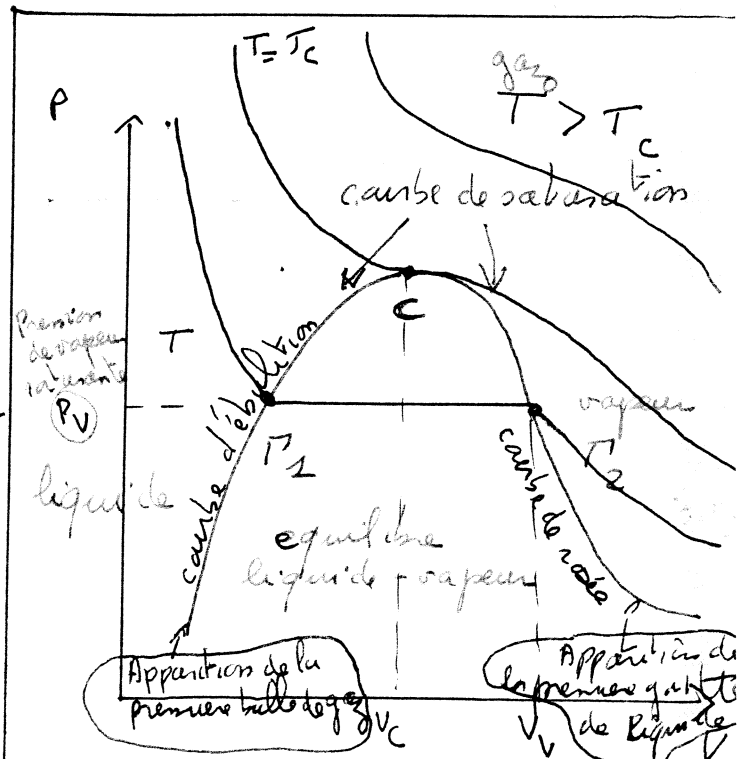 T = Tc
gaz
T > Tc
P
courbe de saturation
C
Pression
de vapeur
saturante
T
Pv
vapeur
liquide
courbe d'ébullition
Γ1
Γ2
courbe de rosée
equilibre
liquide-vapeur
Apparition de la
premiere bulle de gaz
Vc
Vv
Apparition de
la premiere goutte
de liquide
V